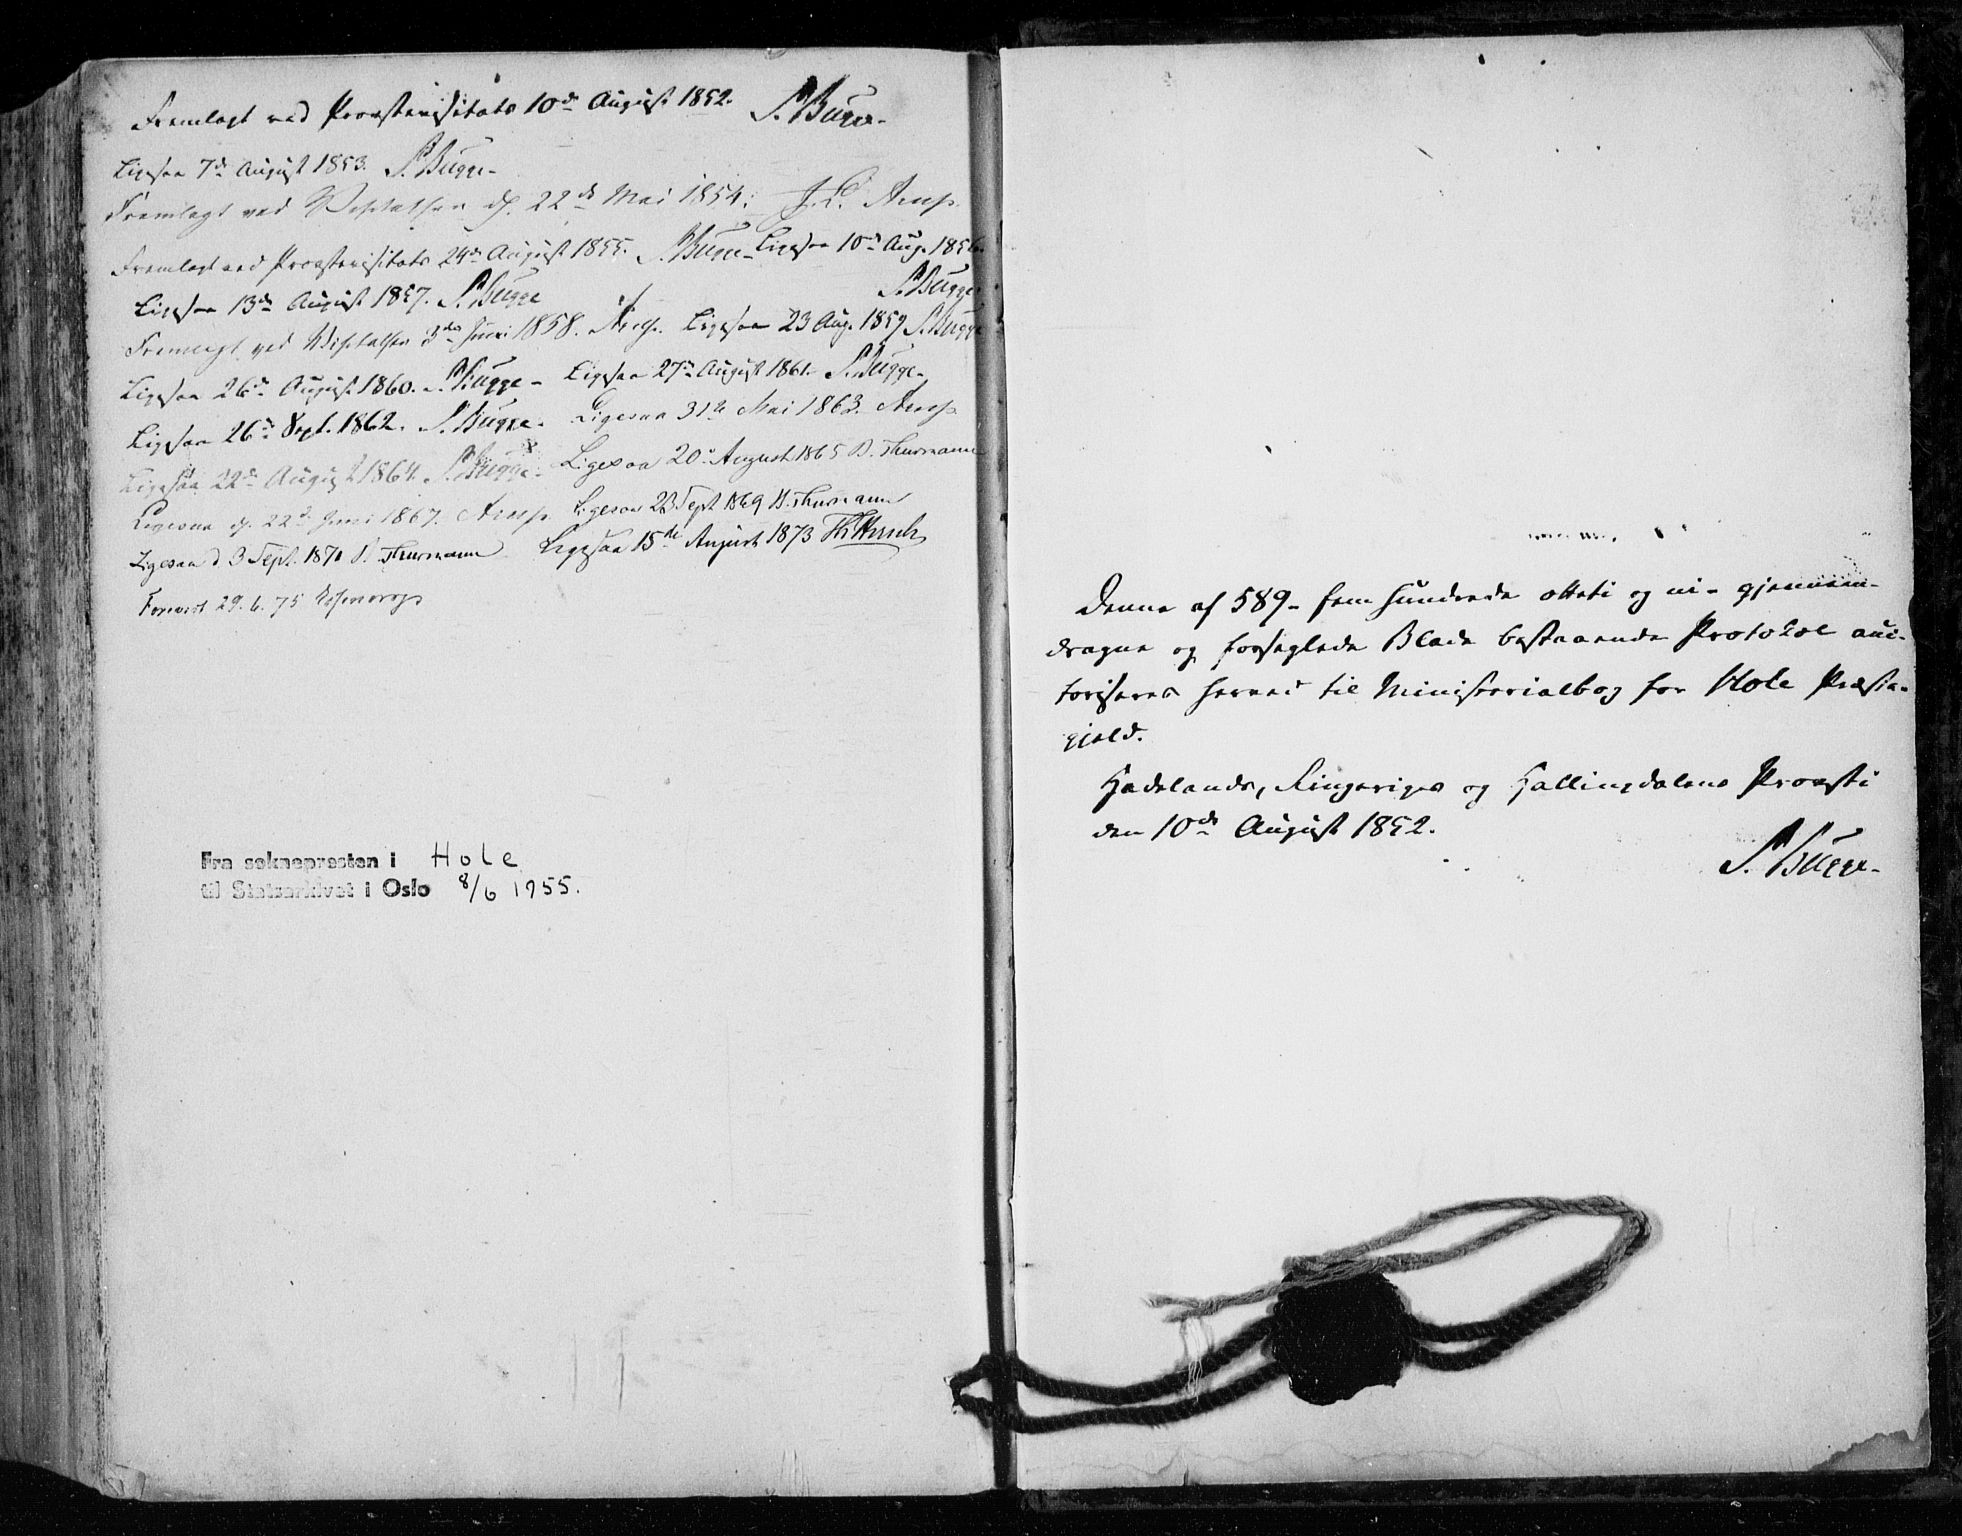 Fremlagt ved Provstevisitats 10de August 1852. S. Bugge.
Ligesaa 7de August 1853. S. Bugge.
Fremlagt ved Visitatsen d. 22de Mai 1854. J. L. Arup.
Fremlagt ved Provstevisitats 24de August 1855. S. Bugge. Ligesaa 10de Aug. 1856.
S. Bugge.
Ligesaa 13de August 1857. S. Bugge
Fremlagt ved Visitatsen 3de Juni 1858. Arup. Ligesaa 23 Aug. 1859 S. Bugge
Ligesaa 26de August 1860. S. Bugge. Ligesaa 27de August 1861. S. Bugge.
Ligesaa 26de Sept. 1862. S. Bugge. Ligesaa 31te Mai 1863. Arup.
Ligesaa 22de August 1864. S. Bugge. Ligesaa 20de August 1865 D. Thurmann
Ligesaa d. 22de Juni 1867. Arup. Ligesaa 23 Sept 1869 D. Thurmann
Ligesaa d 3 Sept. 1871 D. Thurmann Ligesaa 15de August 1873
Forevist 29.6.75
Fra soknepresten i Hole
til Statsarkivet i Oslo 8/6 1955.
Denne af 589 - fem hundrede otteti og ni - gjennem-
dragne og forseglede Blade bestaaende Protokol auc-
toriseres herved til Ministerialbog for Hole Præste-
gjeld.
Hadelands, Ringeriges og Hallingdalens Provsti
den 10de August 1852.
S. Bugge.